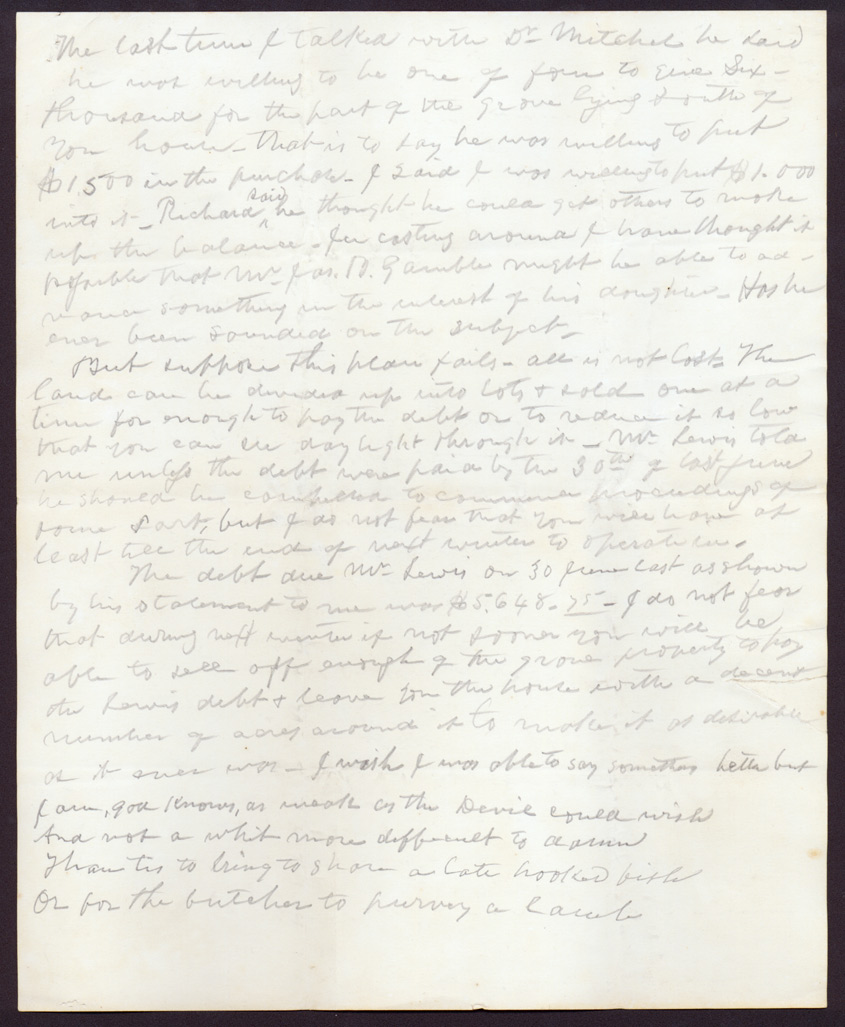 The last time I talked with Dr Mitchel he said
he was willing to be one of four to give Six-
thousand for the part of the grove lying South of
your house - that is to say he was willing to put
$1.500 in the purchase - I said I was willing to put $1.000
into it - Richard said he thought he could get others to make
up the balance - In casting around I have thought it
possible that Mr Jas. D. Gamble might be able to ad-
vance something in the interest of his daughter - Has he
ever been sounded on the subject -
But suppose this plan fails - all is not lost. The
land can be divided up into lots & sold one at a
time for enough to pay the debt or to reduce it so low
that you can see daylight through it - Mr Lewis told
me unless the debt were paid by the 30th of last June
he should be compelled to commence proceedings of
some sort, but I do not fear that you will have at
least till the end of next winter to operate in.
The debt due Mr Lewis on 30 June last as shown
by his statement to me was $5.648.75 - I do not fear
that during next winter if not sooner you will be
able to sell off enough of the grove property to pay
the Lewis debt & leave you the house with a decent
number of acres around it to make it as desirable
as it ever was - I wish I was able to say something better but
I am, god knows, as weak as the Devil could wish
And not a whit more difficult to damn
Than tis to bring to shore a late hooked fish
Or for the butcher to purvey a lamb